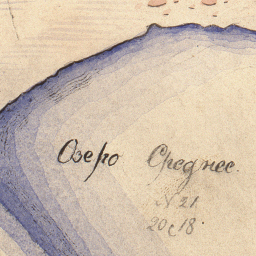 Озеро Среднее.
N 21
20 с 18.